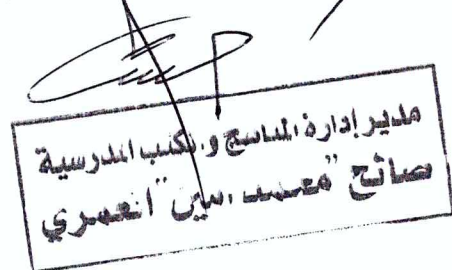 مدير إدارة المناهج والكتب المدرسية
صالح "محمد امين" العمري